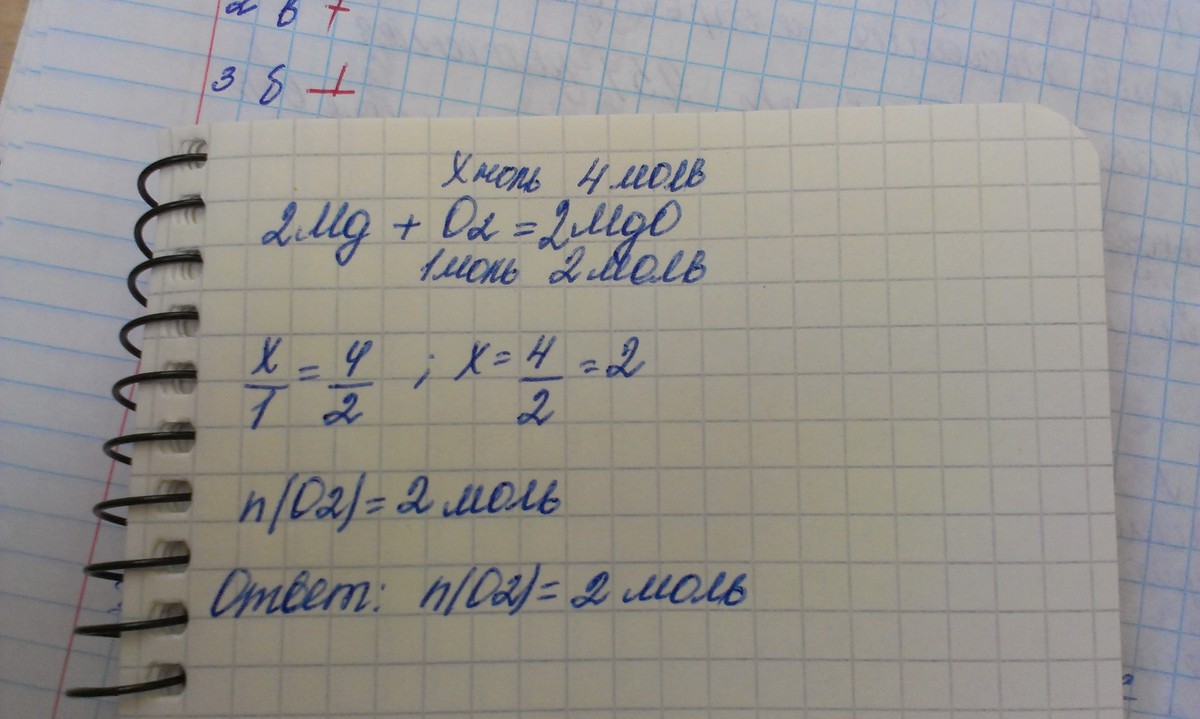 2 в +
3 б +
X моль 4 моль
2Mg + O2 = 2MgO
1 моль 2 моль
X/1 = 4/2 ; X = 4/2 = 2
n(O2) = 2 моль
Ответ: n(O2) = 2 моль